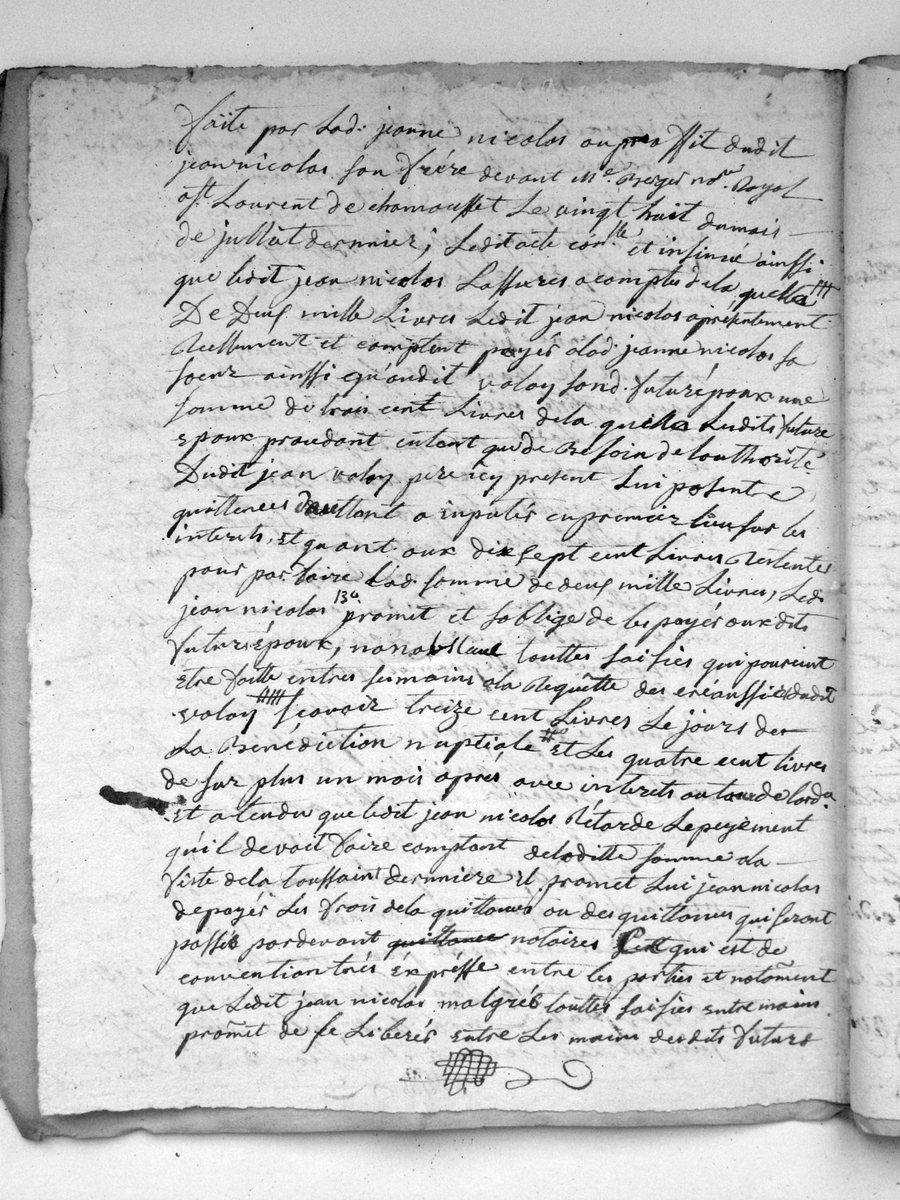 faite par Lad. jeanne nicolas au proffit dudit
jean nicolas son frére devant Me. Berger nore. Royal
a St. Laurent de chamousset Le vingt huit du mois
de juillet dernnier, Ledit acte conlle et insinué ainssi
que ledit jean nicolas L'assure a compte de la quelle
De Deux mille Livres Ledit jean nicolas a présentement
Réellement et comptent payér a lad. jeanne nicolas sa
soeur ainssi qu'audit valoy fond. futur époux une
somme de trois cent Livres de la quelle Lesdits future
époux procedant entent que de Besoin de Louthorité
Dudit jean valoy pere icy present Lui passent
quittences d'aultant a inputér en premier lieu sur les
interets, Et quant aux dix sept cent Livres Restentes
pour parfaire Lad. somme de deux mille Livres, Led.
jean nicolas promet et soblige de les payér aux dits
futurs époux, nonobstent touttes saisies qui pouroint
Etre faitte entres ses mains a la Requêtte des créanssiers dudit
valoy #### scavoir treize cent Livres Le jours de
La Bénédiction nuptiale # Et Les quatre cent livres
de sur plus un mois aprés avec interets au taux de lord.ce
Et atendu que ledit jean nicolas Rétarde Le peyement
qu'il devoit faire comptant de laditte somme a la
fiste de la toussaint dernniere Il promet Lui jean nicolas
de payér Les frais de la quittance ou des quittances qui seront
passéés pardevant quittance notaires qui est de
convention trés éxprésse entre les parties et notamment
que Ledit jean nicolas malgrés touttes saisies entre mains
promet de se Liberér entre Les mains desdits futurs